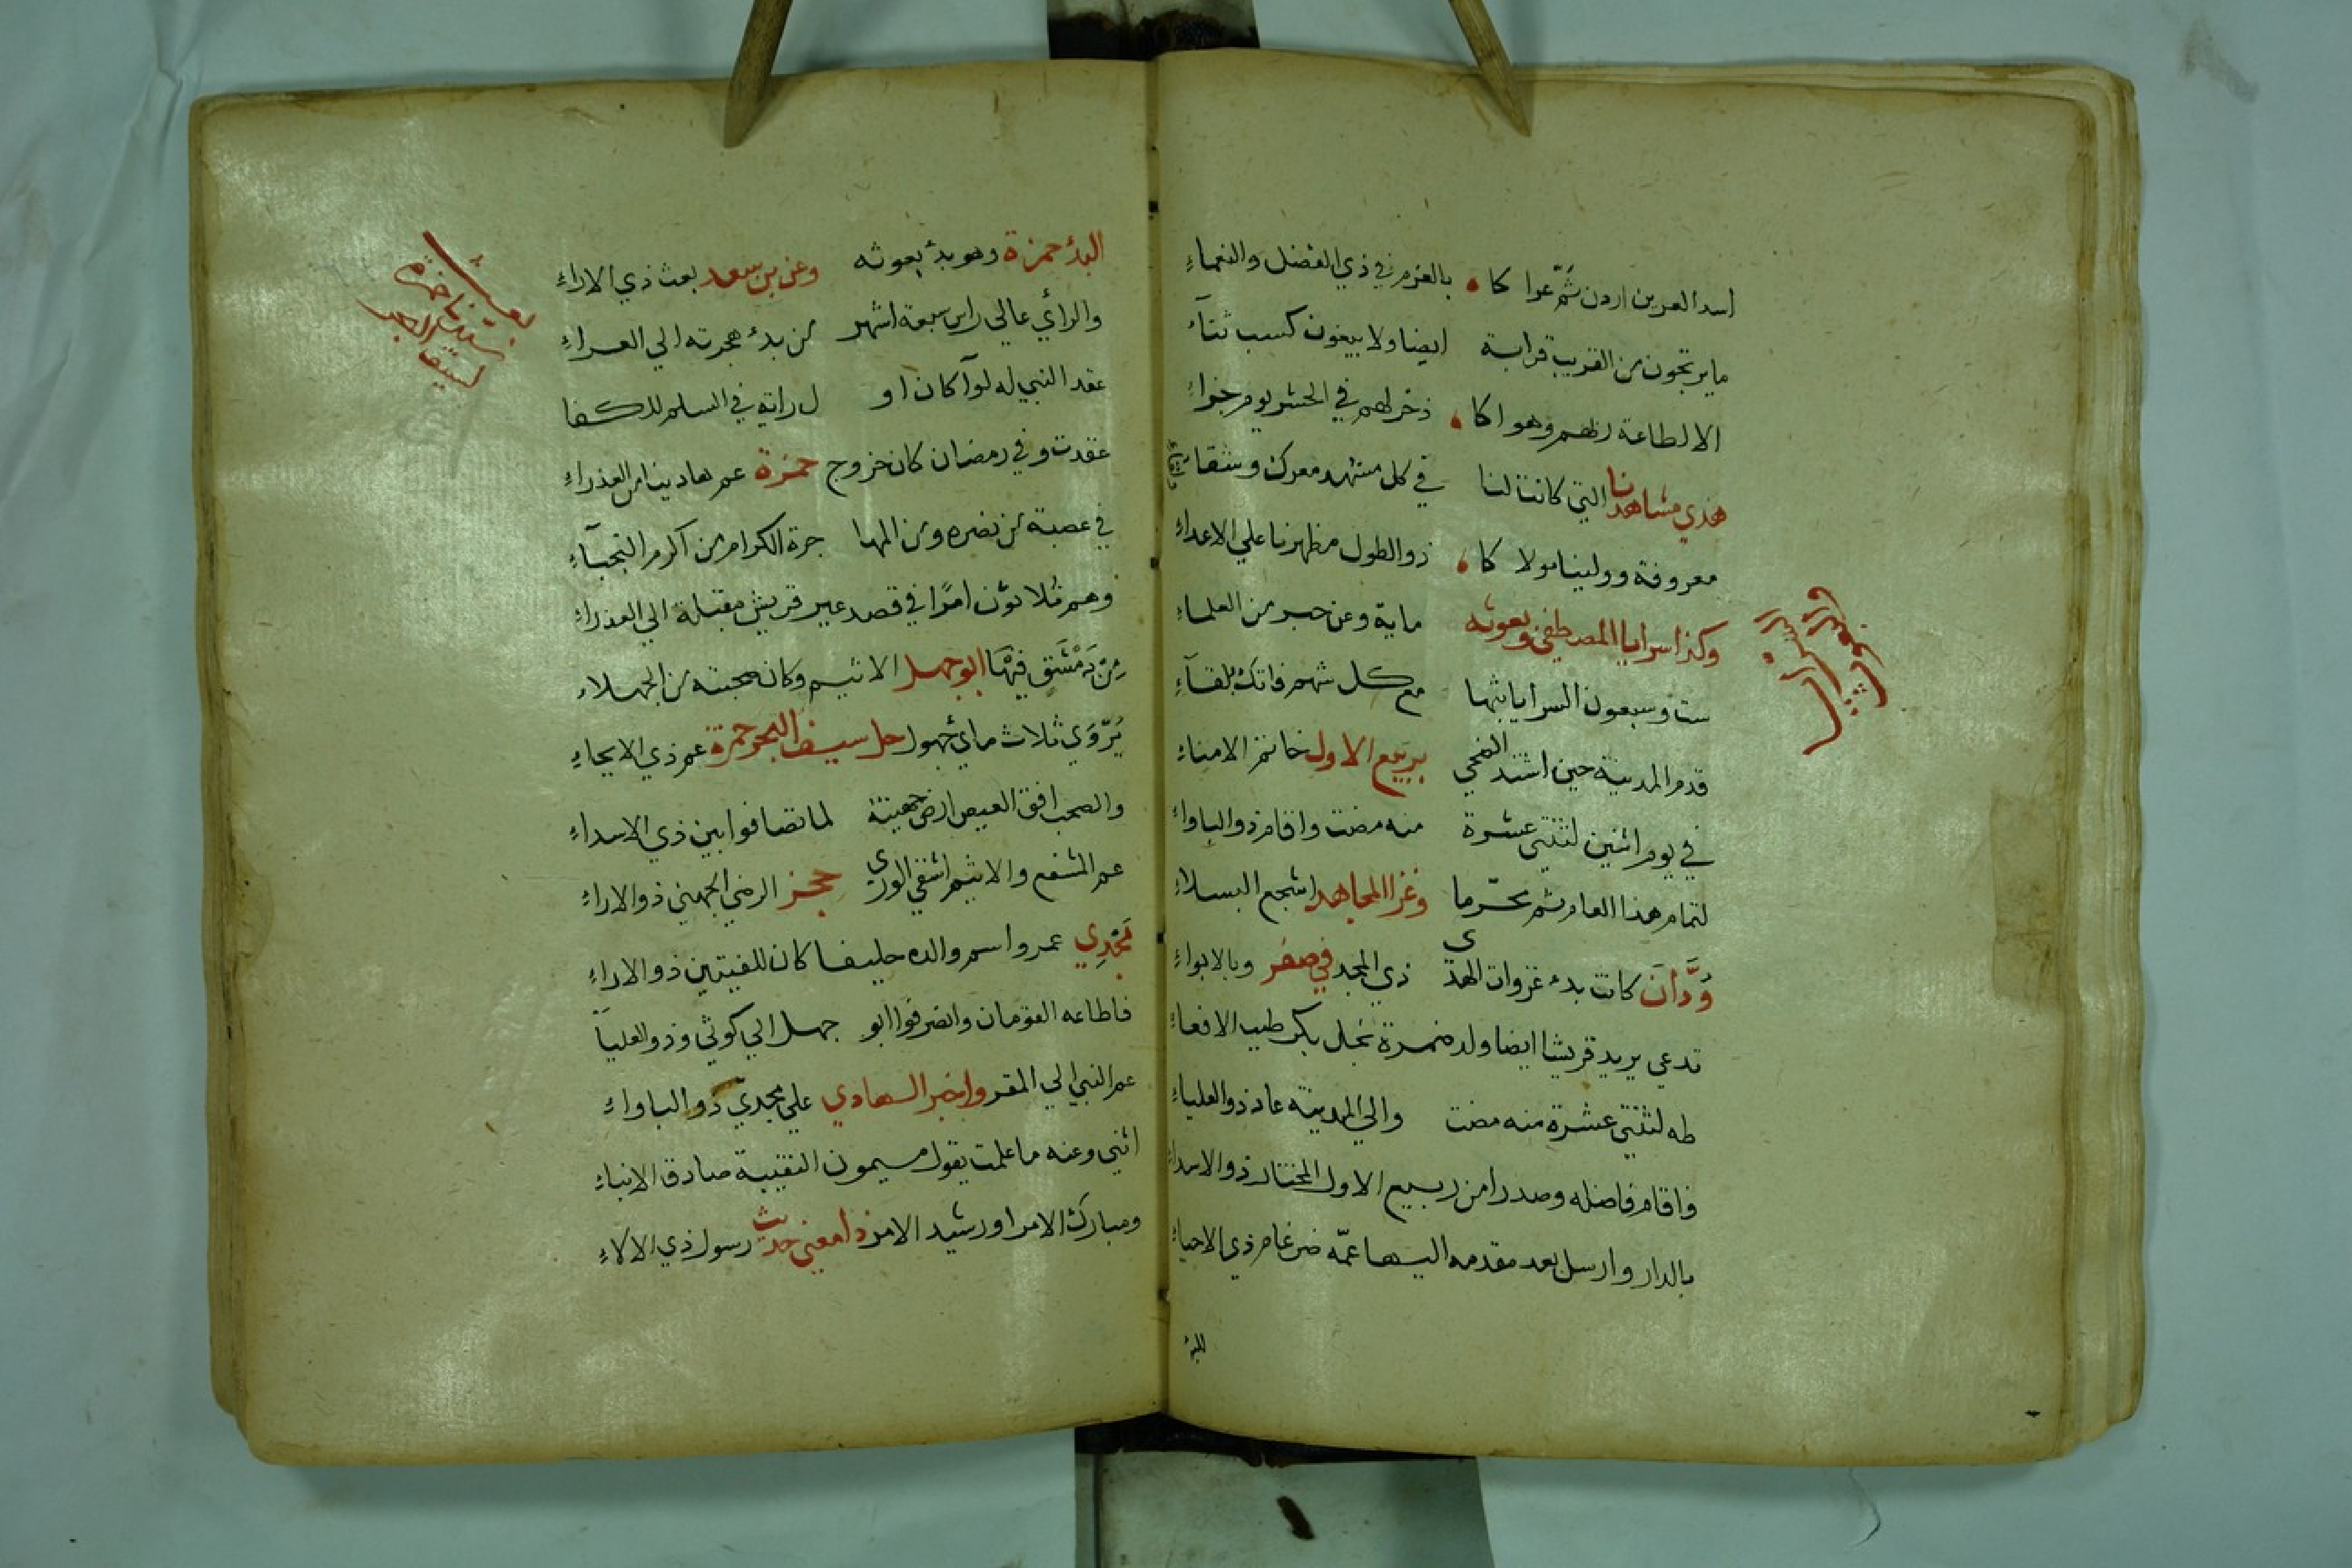 اسد العرين اردن شمّ عوا كا بالعزم في ذي الفضل والنعماء
ما يرتجون من القريب قرابة ايضا ولا يبغون كسب ثنآء
الا لطاعة ربهم وهوا كا ذخر لهم في الحشر يوم جزاء
هذي مشاهدنا التي كانت لنا في كل مشهد معرك وشقاء
معروفة وولينا مولا كا ذو الطول مظهرنا علي الاعداء
وكذا سرايا المصطفي وبعوثه ماية وعن حبر من العلماء
ست وسبعون السرايا بثها مع كل شهم فاتك بلقآء
قدم المدينة حين اشتد الضحي بربيع الاول خاتم الامناء
في يوم اثنين لثنتي عشرة منه مضت واقام ذو الباواء
لتمام هذا العام ثم محرّما وغزا المجاهد اشجع البسلاء
وَدَّانَ كانت بدء غزوات الهدى ذي المجد في صفر وبالابواء
تدعي يريد قريشا ايضا ولد ضمرة نجل بكر طيب الافعاء
طه لثنتي عشرة منه مضت والي المدينة عاد ذو العلياء
فاقام فاضله وصدرا من ربيع الاول المختار ذو الاسداء
بالدار وارسل بعد مقدمه اليها عمّه ضرغام ذي الاحياء
البدء
والبعوث
البدء حمزة وهو بدء بعوثه وعن بن سعد بعث ذي الاراء
والرأي عالي راس سبعة اشهر من بدء هجرته الي العراء
عقد النبي له لوآ كان او ل راية في السلم للاكفا
عقدت وفي رمضان كان خروج حمزة عم هادينا من العذراء
في عصبة من نصره ومن المها جرة الكرام من اكرم النجبآء
وهم ثلاثون امرًا في قصد عير قريش مقبلة الي العذراء
مِن دَمَشْق فيها ابو جهل الاثيم وكان صحبته من الجهلاء
يُرْوَي ثلاث ماي جهول حل سيف البحر حمزة عم ذي الايحاء
والصحب افق العيص ارض جهينة لما تصافوا بين ذي الاسداء
عم المشفع والاثيم اشقي الورى حجز الرضي الجهني ذو الاراء
مَجْدِي عمرو اسم والده حليفا كان للفيتين ذو الاراء
فاطاعه القومان وانصرفوا ابو جهل الي كوثي وذو العليآ
عم النبي الي المقر واخبر الهادي علي مجديّ ذو الباواء
اثني وعنه ما علمت يقول ميمون النقيبة صادق الانباء
ومبارك الامر او رشيد الامر ذا معني حديث رسول ذي الالاء
بعث
سيدنا حمزة
لسيف البحر